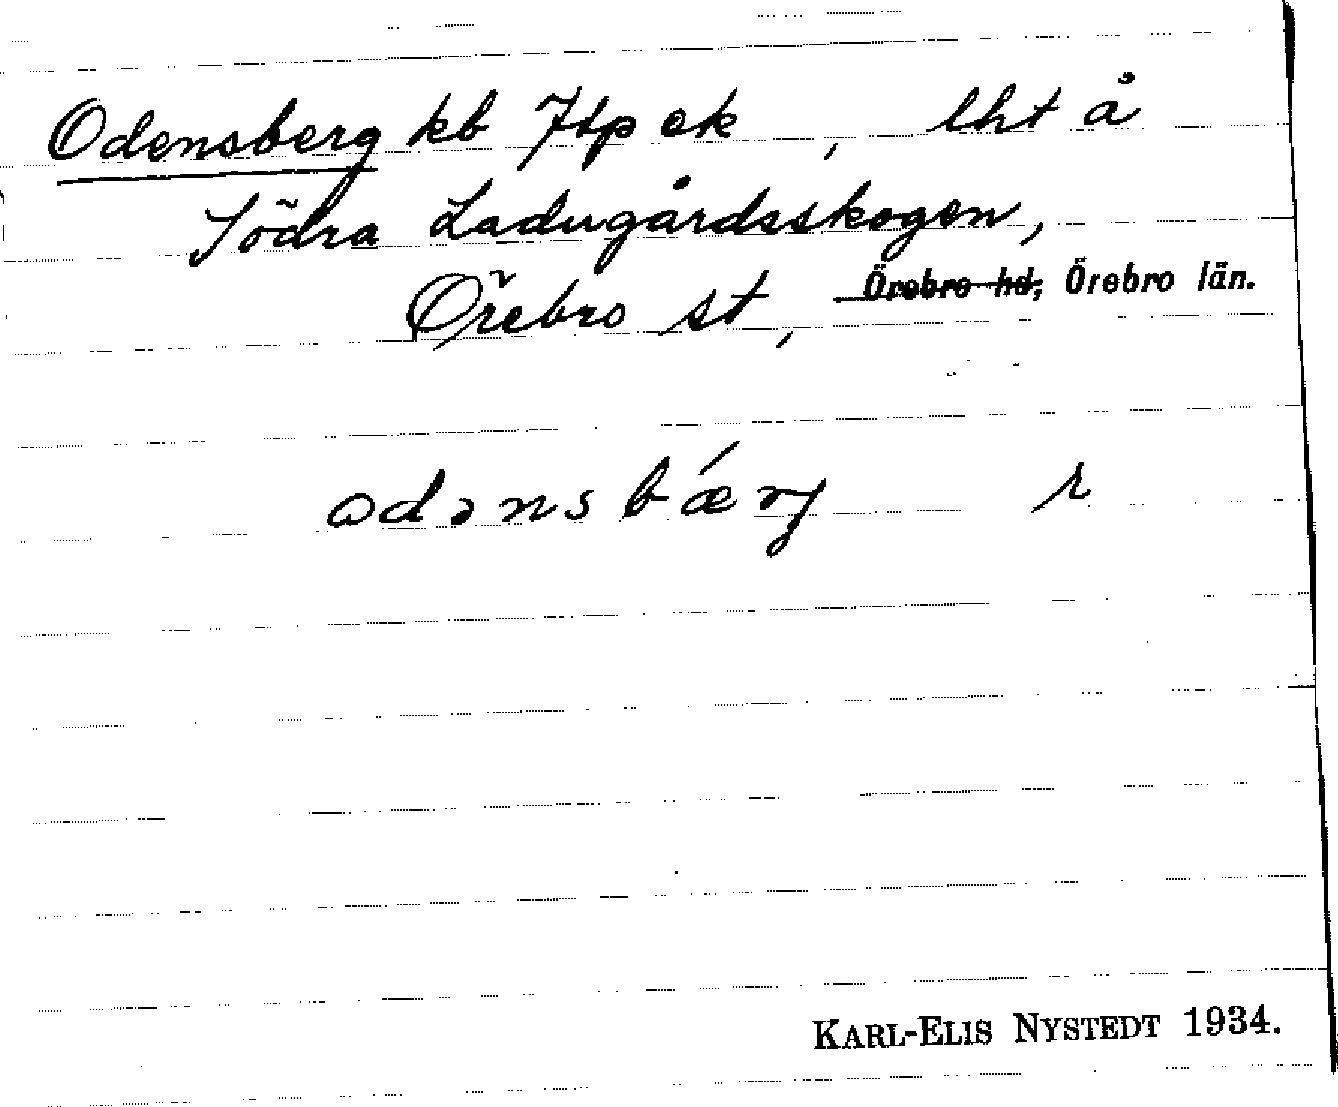 Odensberg kb Jtp ek, lht å
Södra Ladugårdsskogen,
Örebro st, Örebro hd, Örebro län.
odənsbærj r
KARL-ELIS NYSTEDT 1934.